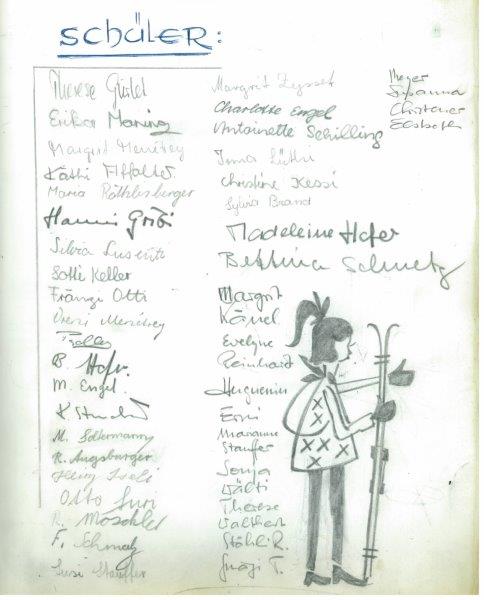 SCHÜLER:
Therese Gfeller
Erika Maring
Margrit Meriétey
Käthi Affolter
Maria Röthlisberger
Hanni Gröbi
Silvia
Sotti Keller
Fränzi Otti
Vreni Meriétrey
B. Hofer
M. Engel
K Studer
M. Sollermann
R. Augsburger
Heinz Iseli
Otto Suri
R. Moschlet
F. Schmalz
Susi Stauffer
Margrit Zysset
Charlotte Engel
Antoinette Schilling
Irma Lüthi
Christine Kessi
Sylvia Brand
Madeleine Hofer
Bettina Schmetz
Margrit
Känel
Evelyne
Reinhard
Huguenin
Erni
Marianne
Stauffer
Sonja
Wälti
Therese
Walther
Stähli R.
T.
Meyer
Susanna
Christener
Elsbeth